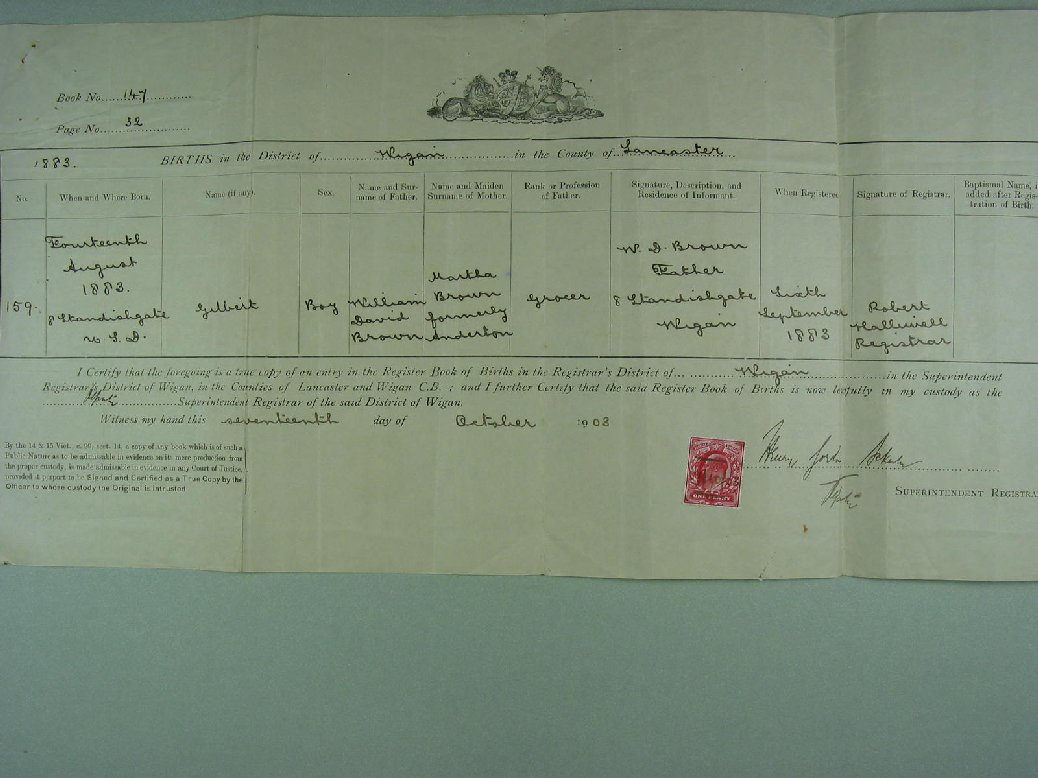 Book No. 147
Page No. 32
1883. BIRTHS in the District of Wigan in the County of Lancaster
No. When and Where Born. Name (if any). Sex. Name and Surname of Father. Name and Maiden Surname of Mother. Rank or Profession of Father. Signature, Description, and Residence of Informant. When Registered Signature of Registrar. Baptismal Name, if added after Registration of Birth.
159. Fourteenth August 1883. 8 Standishgate U. S. D. Gilbert Boy William David Brown Martha Brown formerly Anderton Grocer W. D. Brown Father 8 Standishgate Wigan Sixth September 1883 Robert Halliwell Registrar
I Certify that the foregoing is a true copy of an entry in the Register Book of Births in the Registrar's District of Wigan in the Superintendent
Registrar's District of Wigan, in the Counties of Lancaster and Wigan C.B. ; and I further Certify that the said Register Book of Births is now lawfully in my custody as the
Superintendent Registrar of the said District of Wigan.
Witness my hand this seventeenth day of October 1903
By the 14 & 15 Vict., c. 99, sect. 14, a copy of any book which is of such a
Public Nature as to be admissable in evidence on its mere production from
the proper custody, is made admissable in evidence in any Court of Justice,
provided it purport to be Signed and Certified as a True Copy by the
Officer to whose custody the Original is Intrusted
Henry
ONE PENNY
SUPERINTENDENT REGISTRA